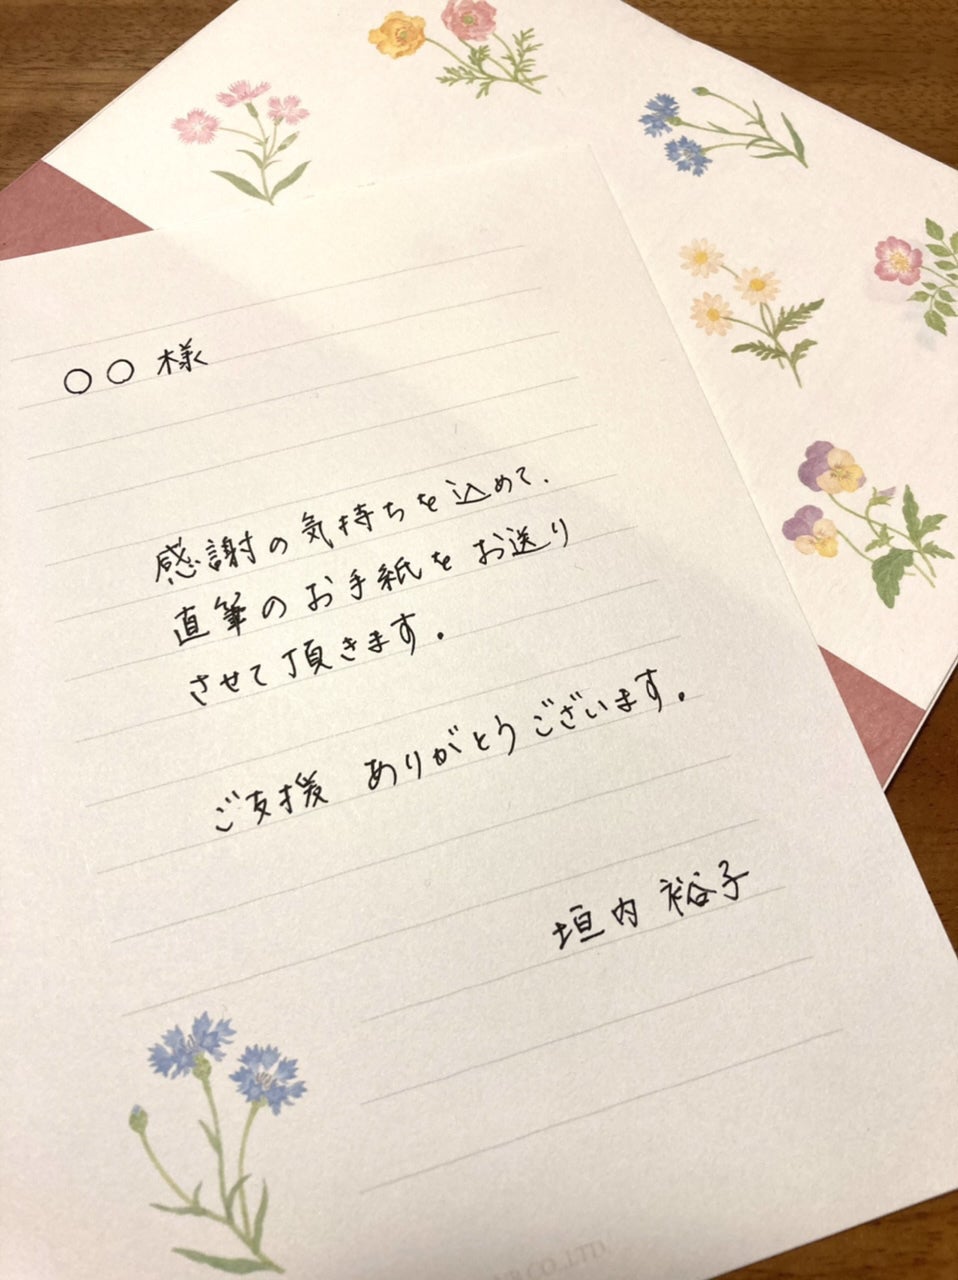 ○○ 様
感謝の気持ちを込めて、
直筆のお手紙をお送り
させて頂きます。
ご支援 ありがとうございます。
垣内 裕子
CO.,LTD.